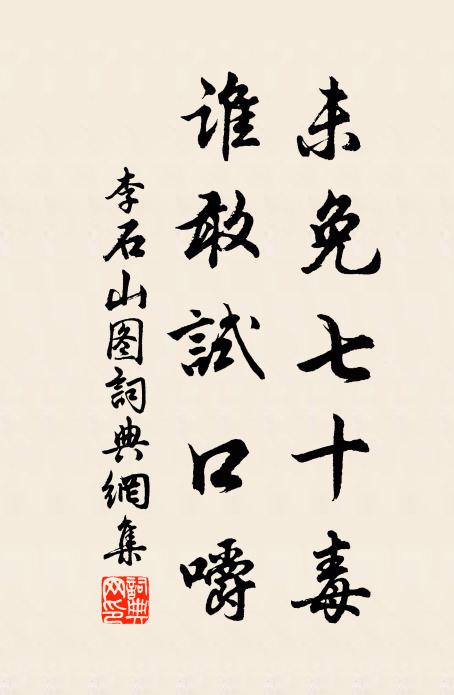 未免七十毒
谁敢試口嚼
李石山图詞典網集
詞典
网印